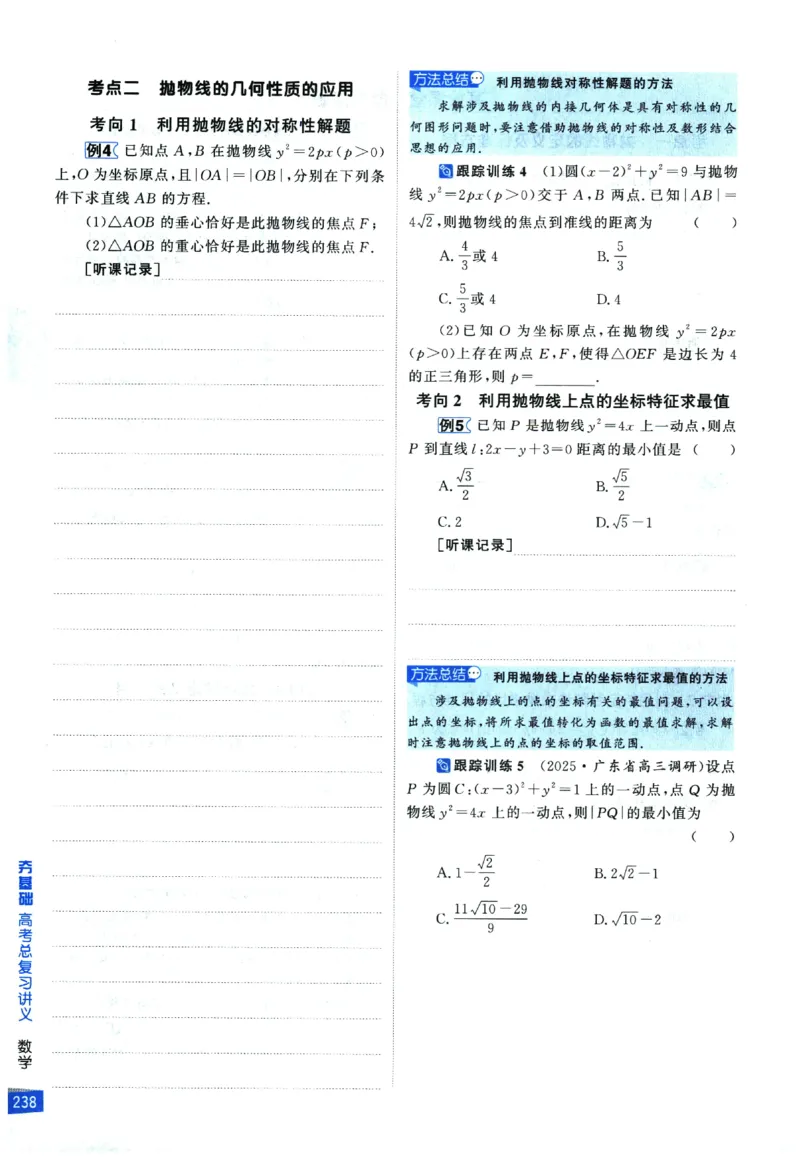 考点二 抛物线的几何性质的应用
考向 1 利用抛物线的对称性解题
例4 已知点 A,B 在抛物线 y²=2px(p>0)
上,O 为坐标原点,且|OA|=|OB|,分别在下列条
件下求直线 AB 的方程.
(1)△AOB 的垂心恰好是此抛物线的焦点 F;
(2)△AOB 的重心恰好是此抛物线的焦点 F.
[听课记录]
方法总结 利用抛物线对称性解题的方法
求解涉及抛物线的内接几何体是具有对称性的几
何图形问题时,要注意借助抛物线的对称性及数形结合
思想的应用.
跟踪训练 4 (1)圆(x-2)²+y²=9 与抛物
线 y²=2px(p>0)交于 A,B 两点.已知|AB|=
4√2,则抛物线的焦点到准线的距离为 ( )
A.4/3或 4 B.5/3
C.5/3或 4 D.4
(2)已知 O 为坐标原点,在抛物线 y²=2px
(p>0)上存在两点 E,F,使得△OEF 是边长为 4
的正三角形,则 p=______.
考向 2 利用抛物线上点的坐标特征求最值
例5 已知 P 是抛物线y²=4x 上一动点,则点
P 到直线 l:2x-y+3=0 距离的最小值是 ( )
A.√3/2 B.√5/2
C.2 D.√5-1
[听课记录]
方法总结 利用抛物线上点的坐标特征求最值的方法
涉及抛物线上的点的坐标有关的最值问题,可以设
出点的坐标,将所求最值转化为函数的最值求解,求解
时注意抛物线上的点的坐标的取值范围.
跟踪训练 5 (2025·广东省高三调研)设点
P 为圆 C:(x-3)²+y²=1 上的一动点,点 Q 为抛
物线 y²=4x 上的一动点,则|PQ|的最小值为
( )
A.1-√2/2 B.2√2-1
C.(11√10-29)/9 D.√10-2
夯基础 高考总复习讲义 数学
238